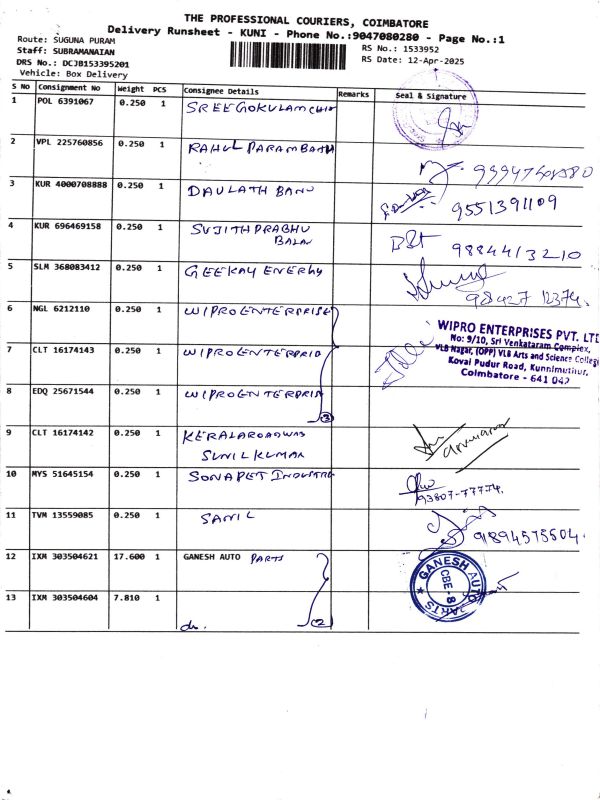 THE PROFESSIONAL COURIERS, COIMBATORE
Delivery Runsheet - KUNI - Phone No.:9047080280 - Page No.:1
Route: SUGUNA PURAM
Staff: SUBRAMANAIAN
DRS No.: DCJB153395201
Vehicle: Box Delivery
RS No.: 1533952
RS Date: 12-Apr-2025
S No Consignment No Weight PCS Consignee Details Remarks Seal & Signature
1 POL 6391067 0.250 1 SREEGOKULAMCHI
2 VPL 225760856 0.250 1 RAHUL PARAMBATH
3 KUR 4000708888 0.250 1 DAULATH BANU 9551391109
4 KUR 696469158 0.250 1 SUJITH PRABHU
BALAN
9884413210
5 SLM 368083412 0.250 1 GEEKAY ENERGY
98427 12374.
6 NGL 6212110 0.250 1 WIPRO ENTERPRISE
WIPRO ENTERPRISES PVT. LTD
No: 9/10, Sri Venkataram Complex,
VLB Nagar, (OPP) VLB Arts and Science College
Kovai Pudur Road, Kunnimuthur,
Coimbatore - 641 042
7 CLT 16174143 0.250 1 WIPROENTERPRIS
8 EDQ 25671544 0.250 1 WIPROENTERPRIS
3
9 CLT 16174142 0.250 1 KERALAROADWAS
SUNILKUMAR
10 MYS 51645154 0.250 1 SONAPET INDUSTRE
93807-77774.
11 TVM 13559085 0.250 1 SANIL 9894575504.
12 IXM 303504621 17.600 1 GANESH AUTO PARTS
GANESH AUTO PARTS
CBE-8
13 IXM 303504604 7.810 1
do. 2